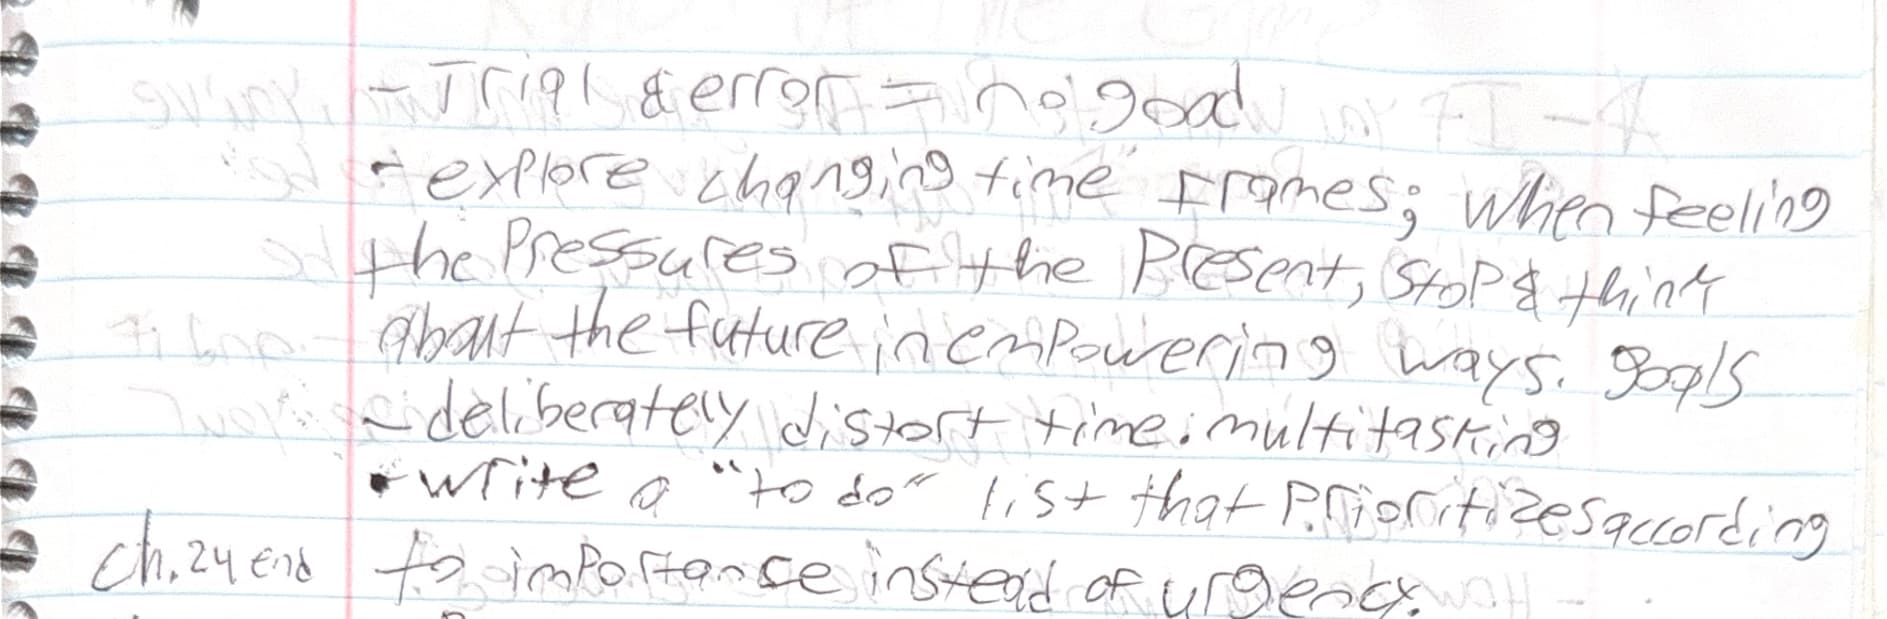 - Trial & error = no good
- explore changing time frames; when feeling
the pressures of the present, stop & think
about the future in empowering ways. goals
- deliberately distort time: multitasking
- write a "to do" list that prioritizes according
ch. 24 end to importance instead of urgency.